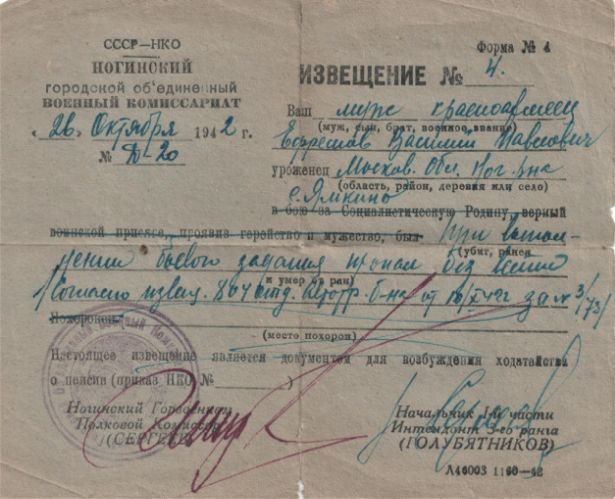 СССР—НКО
НОГИНСКИЙ
городской об'единенный
ВОЕННЫЙ КОМИССАРИАТ
„26" Октября 1942 г.
№ Д-20
Форма № 4
ИЗВЕЩЕНИЕ № 4.
Ваш муж красноармеец
(муж, сын, брат, военное звание)
Ефремов Василий Павлович
уроженец Москов. Обл. Ног. р-на
(область, район, деревня или село)
с. Ямкино
в бою за Социалистическую Родину, верный
воинской присяге, проявив геройство и мужество, был При выпол-
(убит, ранен
нении боевого задания пропал без вести
и умер от ран)
Согласно извещ. 804 отд. б-на от за № 3/73
Похоронен
(место похорон)
Настоящее извещение является документом для возбуждения ходатайства
о пенсии (приказ НКО № )
Ногинский Горвоенком
Полковой Комиссар
(СЕРГЕЕВ)
Начальник 1-й части
Интендант 3-го ранга
(ГОЛУБЯТНИКОВ)
Л46003 1160—42